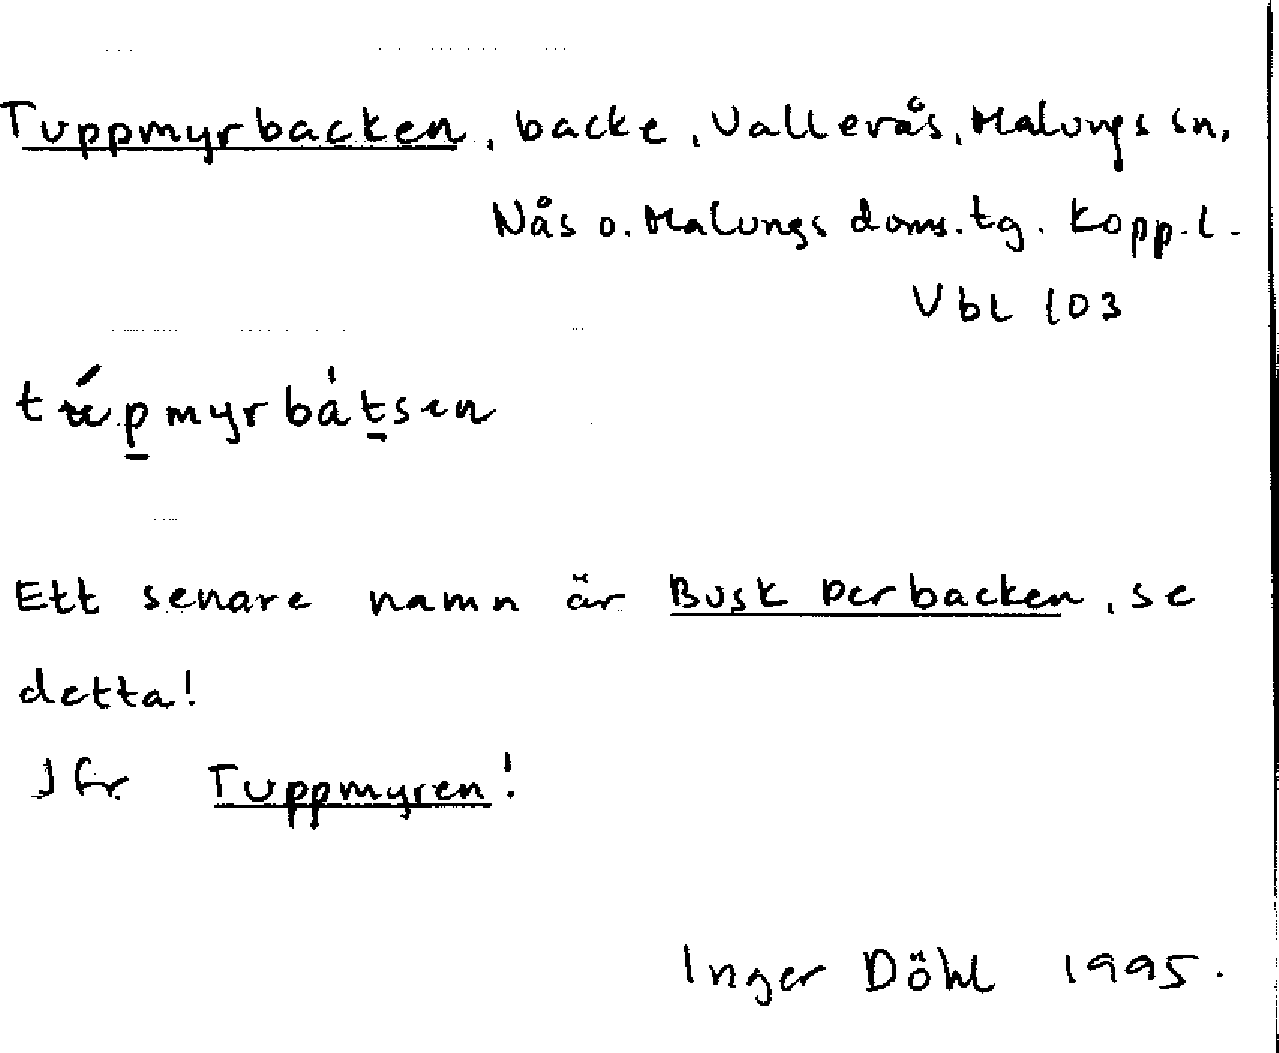 Tuppmyrbacken, backe, Vallerås, Malungs sn,
Nås o. Malungs doms.tg. Kopp.l.
Vbl 103
Ett senare namn är Busk Perbacken, se
detta!
Jfr Tuppmyren!
Inger Döhl 1995.